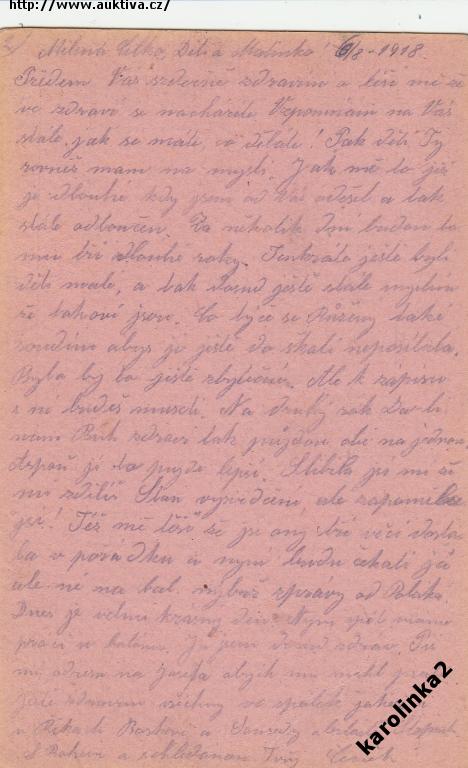 http://www.auktiva.cz/
Milená Děti a Maminko! 6/8-1918
Předem Vás srdečně zdravím a těší mě že
ve zdraví se nacházíte Vzpomínám na Vás
stále, jak se máte, co děláte! Pak děti Ty
rovněž mám na mysli. Jak mě to již
je dlouhé kdy jsem od Vás odešel a tak
stále odloučen. Za několik dní budou to
mu tři dlouhé roky. Tenkráte ještě byli
děti malé, a tak dosud ještě stále myslím
že takoví jsou. Co týče se Růženy také
soudím abys jo ještě do školi neposílala.
Byla by to ještě zbytečné. Ale k zápisu
s ní budeš museti. Na druhý rok Dá-li
nám Bůh zdraví tak půjdou obě na jednou,
Aspoň jí to pujde lepší. Slíbila jsi mi že
mi sdělíš Stan vysvědčení, ale zapoměla
jsi! Též mě těší že jsi ony tři věci dosta
la v pořádku a nyní budu čekati já
ale ne na bal. nýbrž zprávy od Poláka.
Dnes je velmi krásný den. Nyní opět máme
práci u Já jsem dosud zdráv.
adresu na Josefa abych mu mohl
zdravím všechny
a
S Bohem a schledanou Tvůj
karolinka2